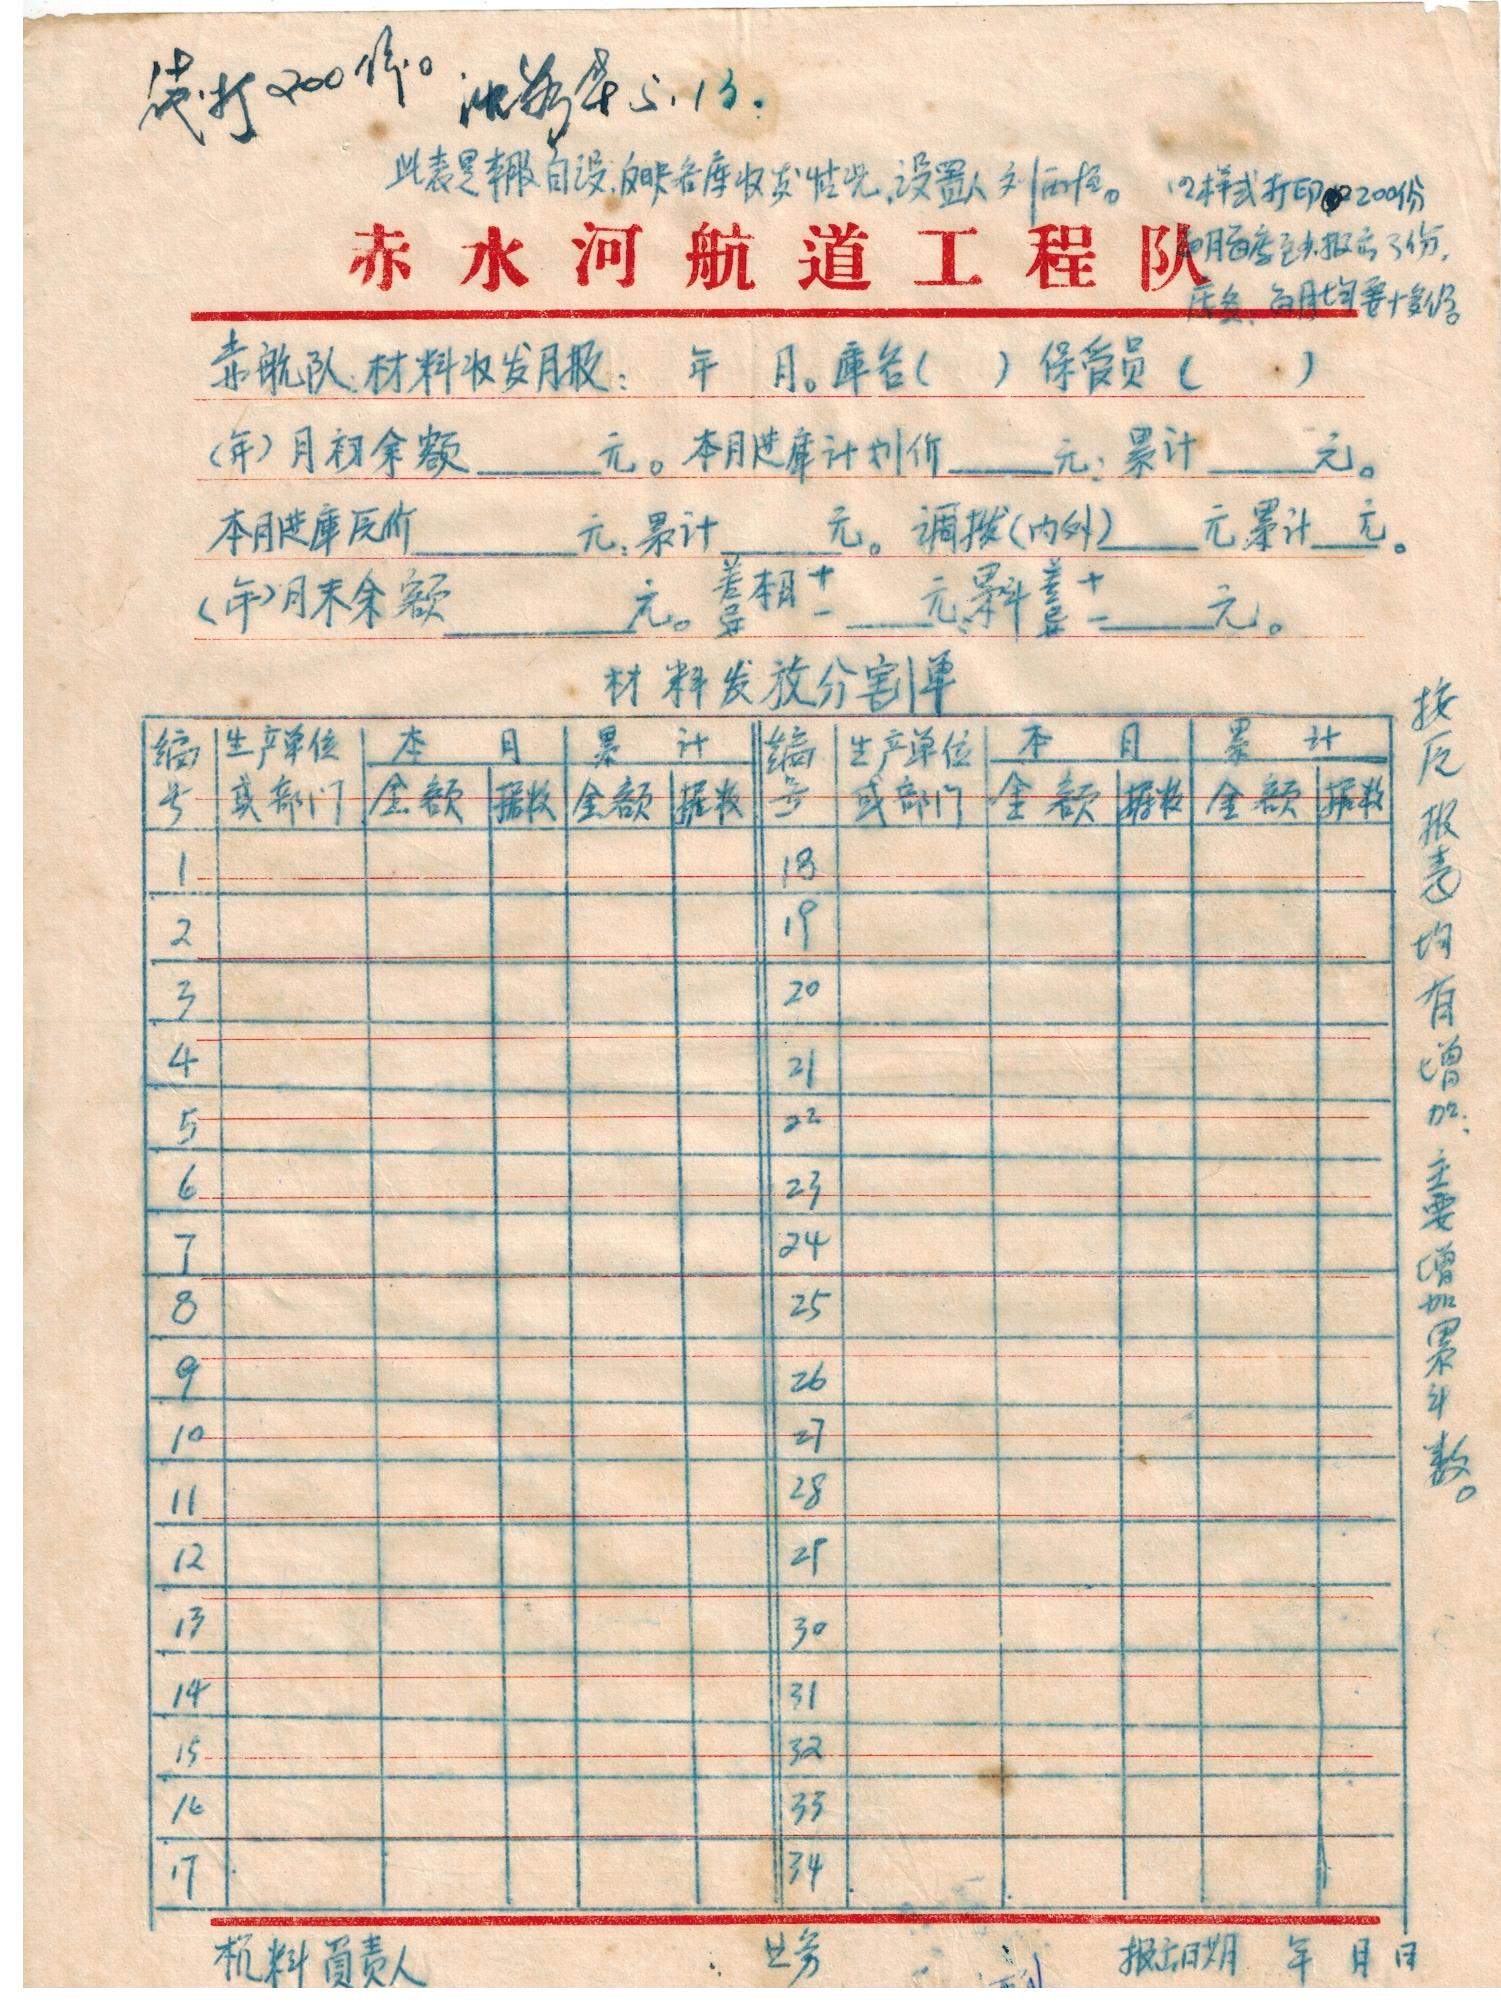 打200份。 5.13.
此表是 自设,反映各库收发情况,设置人刘
以样式打印200份
赤水河航道工程队
每月 每月均要十多份。
赤航队:材料收发月报: 年 月。库名( ) 保管员( )
(年)月初余额____元。本月进库计划价____元;累计____元。
本月进库原价____元;累计____元。调拨(内外)____元累计__元。
(年)月末余额____元。差异本月+-____元累计差异+-____元。
材料发放分割单
编号 生产单位或部门 本月 累计 编号 生产单位或部门 本月 累计
金额 据数 金额 据数 金额 据数 金额 据数
1 18
2 19
3 20
4 21
5 22
6 23
7 24
8 25
9 26
10 27
11 28
12 29
13 30
14 31
15 32
16 33
17 34
按原报表均有增加,主要增加累计数。
机料负责人 业务 报出日期 年 月 日